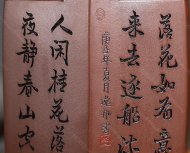 落花如有意
来去逐船流
年夏月
人闲桂花落
夜静春山空